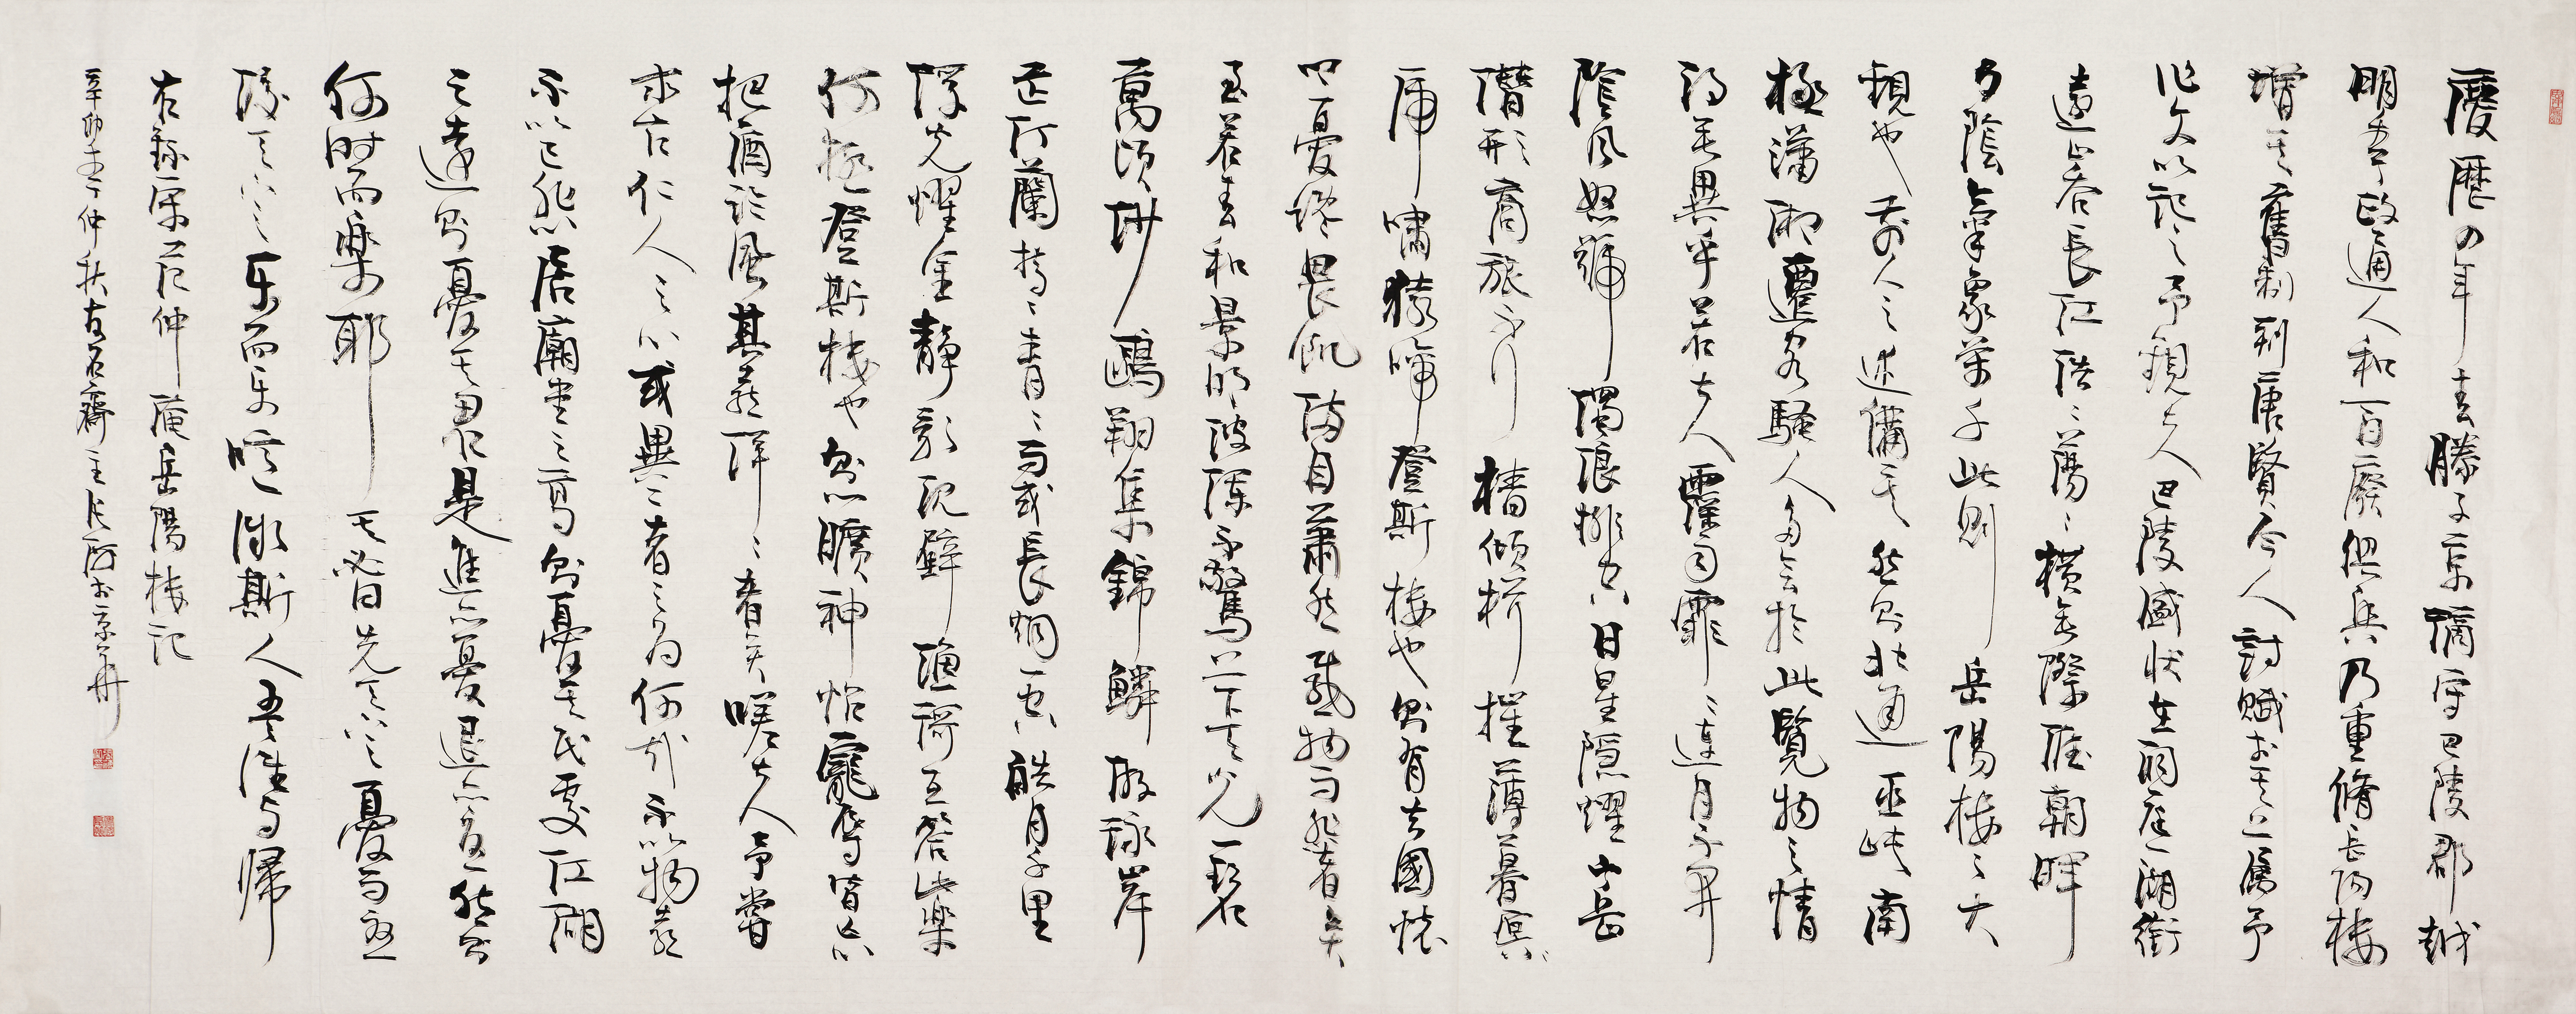 慶歷四年春滕子京謫守巴陵郡越
明年政通人和百廢俱興乃重脩岳陽樓
增其舊制刻唐賢今人詩賦於其上屬予
作文以記之予觀夫巴陵盛狀在洞庭一湖銜
遠山吞長江浩々蕩々橫無際涯朝暉
夕陰氣象萬千此則岳陽樓之大
觀也前人之述備矣然則北通巫峽南
極瀟湘遷客騷人多會於此覽物之情
得無異乎若夫霪雨霏々連月不開
陰風怒號濁浪排空日星隱耀山岳
潛形商旅不行檣傾楫摧薄暮冥々
虎嘯猿啼登斯樓也則有去國懷
鄉憂讒畏譏滿目蕭然感極而悲者矣
至若春和景明波瀾不驚上下天光一碧
萬頃沙鷗翔集錦鱗游泳岸
芷汀蘭郁々青々而或長煙一空皓月千里
浮光耀金靜影沉璧漁歌互答此樂
何極登斯樓也則心曠神怡寵辱皆忘
把酒臨風其喜洋々者矣嗟夫予嘗
求古仁人之心或異二者之為何哉不以物喜
不以己悲居廟堂之高則憂其民處江湖
之遠則憂其君是進亦憂退亦憂然則
何時而樂耶其必曰先天下之憂而憂
後天下之樂而樂噫微斯人吾誰與歸
右錄宋范仲淹岳陽樓記
辛卯年仲秋古石齋主張                於京華